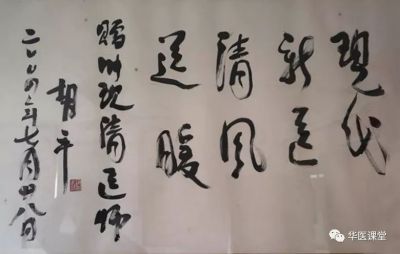 現代
新医
清風
送暖
贈 现清医师
胡平
二〇〇四年七月廿八日
华医课堂